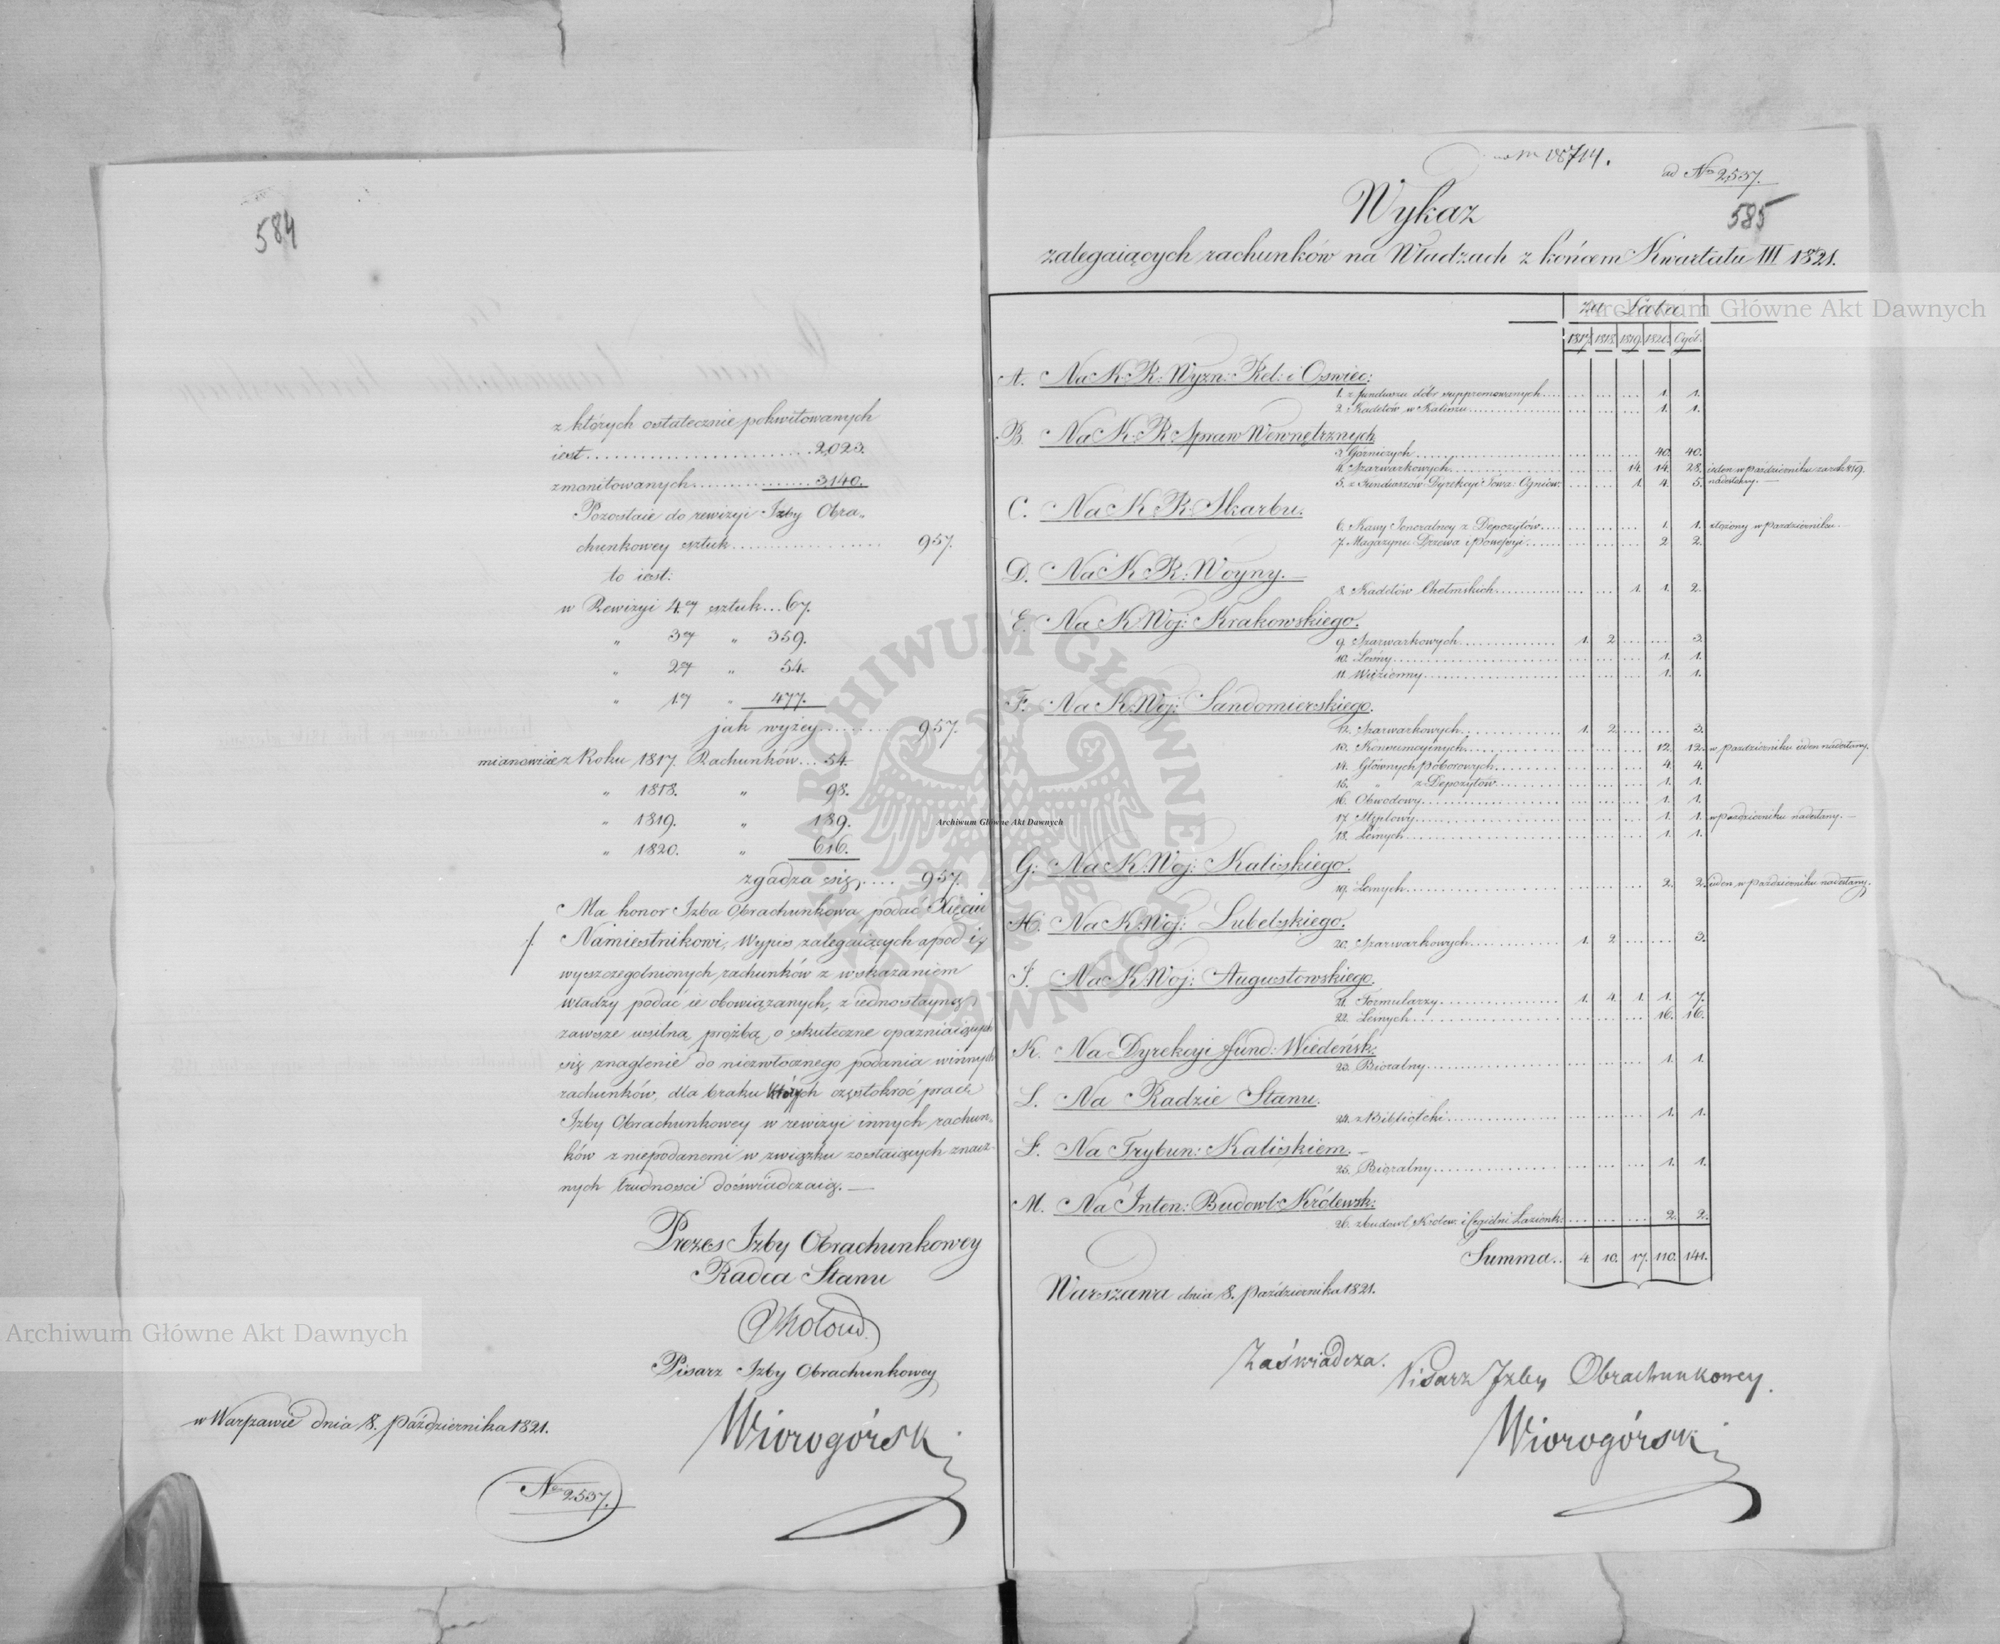 584
z których ostatecznie pokwitowanych
iest.......................... 2,023.
zmonitowanych............... 3,140.
Pozostaie do rewizyi Izby Obra„
chunkowey sztuk.................. 957.
to iest:
w Rewizyi 4ey sztuk... 67.
„ 3ey „ 359.
„ 2ey „ 54.
„ 1y „ 477.
jak wyżey.......... 957.
mianowicie z Roku 1817. Rachunków... 54.
„ 1818. „ 98.
„ 1819. „ 189.
„ 1820. „ 616.
zgadza się..... 957.
Ma honor Izba Obrachunkowa podać Xięciu
Namiestnikowi, Wypis zalegaiących a pod ·/.
wyszczególnionych rachunków z wskazaniem
władzy podać ie obowiązanych, z iednostayną
zawsze usilną prożbą, o skuteczne opazniaiących
się znaglenie do niezwłocznego podania winnych
rachunków, dla braku których częstokroć prace
Izby Obrachunkowey w rewizyi innych rachun„
ków z niepodanemi w związku zostaiących znacz„
nych trudności doświadczaią. —
Prezes Izby Obrachunkowey
Radca Stanu
Pisarz Izby Obrachunkowey
Wiorogórski
w Warszawie dnia 8. Października 1821.
No 2537.
ad No 2537.
585
Wykaz
zalegaiących rachunków na Władzach z końcem Kwartału III 1821.
za Lata
1817. 1818. 1819. 1820. Ogół.
A. Na K: R: Wyzn: Rel: i Oswiec:
1. z funduszu dóbr suppremowanych.... 1. 1.
2. Kadetów w Kaliszu.... 1. 1.
B. Na K: R Spraw Wewnętrznych
3. Górniczych.... 40. 40.
4. Szarwarkowych.... 14. 14. 28. ieden w październiku za rok 819.
nadesłany. —
5. z Funduszów Dyrekcyi Towa: Ogniow: 1. 4. 5.
C. Na K R Skarbu.
6. Kassy Jeneralney z Depozytów.... 1. 1. złożony w październiku.
7. Magazynu Drzewa i posessyi.... 2. 2.
D. Na K R: Woyny. —
8. Kadetów Chełmskich.... 1. 1. 2.
E. Na K Woj: Krakowskiego.
9. Szarwarkowych.... 1. 2. 3.
10. Leśny.... 1. 1.
11. Więzienny.... 1. 1.
F. Na K Woj: Sandomierskiego.
12. Szarwarkowych.... 1. 2. 3.
13. Konsumcyinych.... 12. 12. w październiku ieden nadesłany.
14. Głównych poborowych.... 4. 4.
15. „ z Depozytów.... 1. 1.
16. Obwodowy.... 1. 1.
17. Stęplowy.... 1. 1. w październiku nadesłany. —
18. Leśnych.... 1. 1.
G: Na K Woj: Kaliskiego.
19. Lesnych.... 2. 2. ieden w październiku nadesłany.
H. Na K Woj: Lubelskiego.
20. Szarwarkowych.... 1. 2. 3.
I. Na K Woj: Augustowskiego.
21. Formularzy.... 1. 4. 1. 1. 7.
22. Lesnych.... 16. 16.
K. Na Dyrekcyi fund: Wiedeńsk:
23. Bioralny.... 1. 1.
L. Na Radzie Stanu.
24. z Biblioteki.... 1. 1.
Ł. Na Trybun: Kaliskiem. —
25. Bioralny.... 1. 1.
M. Na Inten: Budowl Królewsk:
26. z budowl Królew: i Łazienk: 2. 2.
Summa.. 4. 10. 17. 110. 141.
Warszawa dnia 8. Października 1821.
Zaświadcza.
Pisarz Izby Obrachunkowey.
Wiorogórski
Archiwum Główne Akt Dawnych
Archiwum Główne Akt Dawnych
Archiwum Główne Akt Dawnych